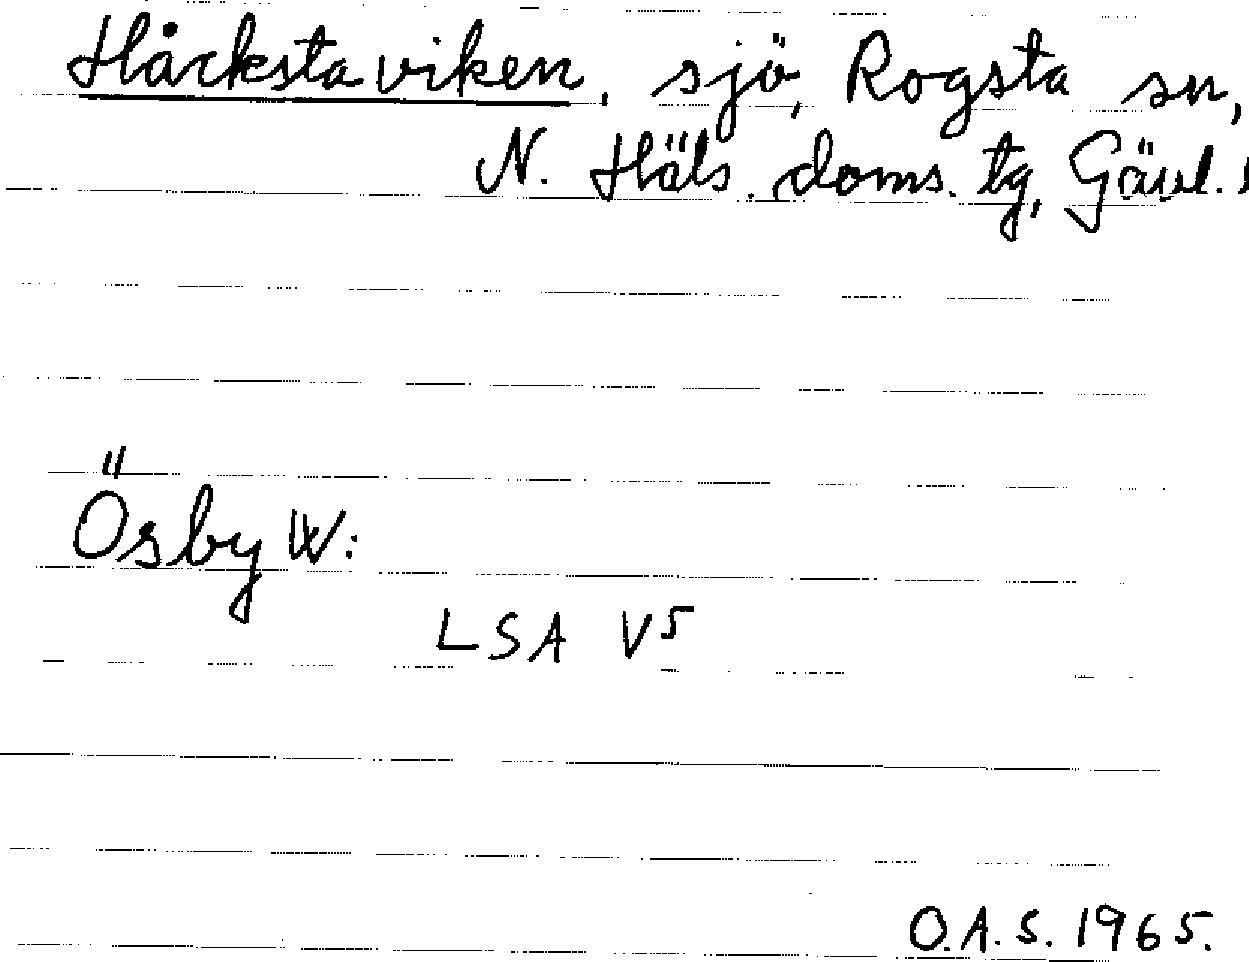 Håcksta viken, sjö, Rogsta sn,
N. Häls. doms. tg, Gävl. l
Ösby W:
LSA V5
O.A.S. 1965.